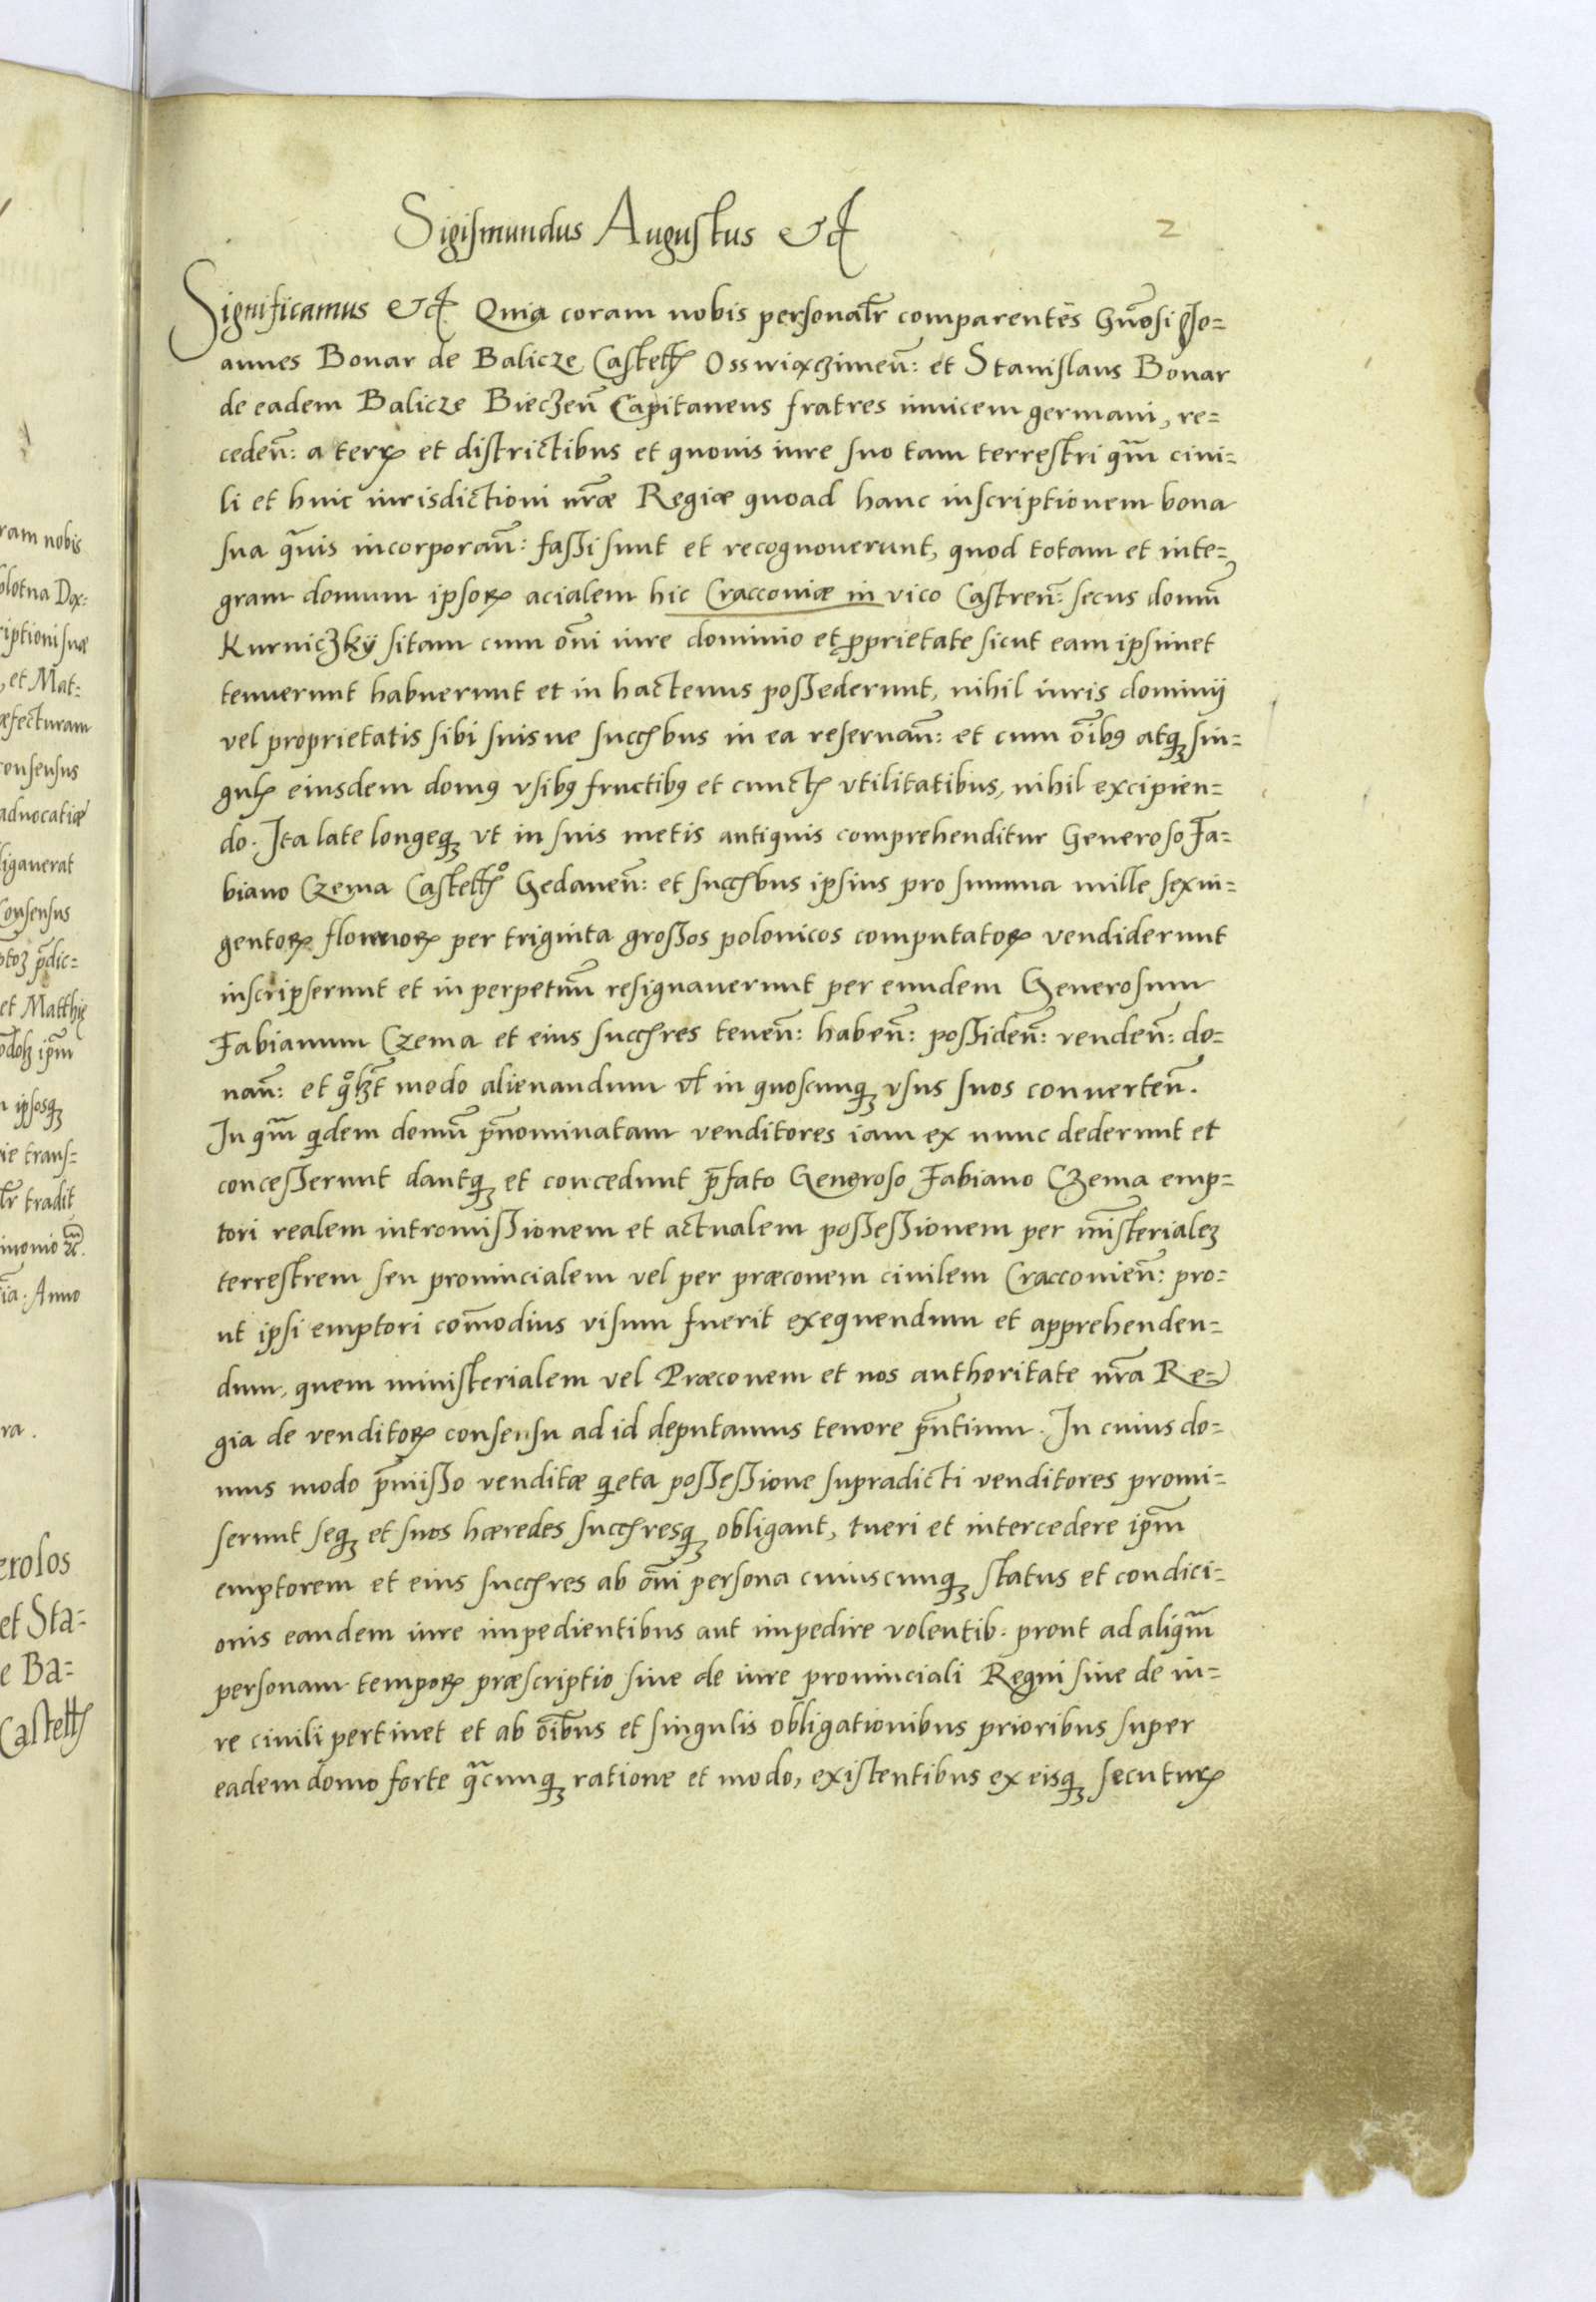 Sigismundus Augustus &c
2
Significamus &c Quia coram nobis personalr̃ comparentes Gñosi Jo=
annes Bonar de Balicze Castell Osswiączimeñ: et Stanislaus Bonar
de eadem Balicze Bieczeñ Capitaneus fratres invicem germani, re=
cedeñ: a terrꝝ et districtibus et quovis iure suo tam terrestri qm̃ civi=
li et huic iurisdictioni nr̃æ Regiæ quoad hanc inscriptionem bona
sua quãvis incorporañ: faßi sunt et recognoverunt, quod totam et inte=
gram domum ipsoꝝ acialem hic Cracoviæ in vico Castreñ: secus domũ
Kurniczky sitam cum om̃i iure dominio et ꝓprietate sicut eam ipsimet
tenuerunt habuerunt et in hactenus poßederunt, nihil iuris dominÿ
vel proprietatis sibi suisve succ̃bus in ea reservañ: et cum oĩbꝯ atqꝫ sin=
gulis eiusdem domꝯ vsibꝯ fructibꝯ et cunctis vtilitatibus, nihil excipien=
do. Ita late longeqꝫ vt in suis metis antiquis comprehenditur Generoso Fa=
biano Czema Castell° Gedaneñ: et succ̃bus ipsius pro summa mille sexin=
gentoꝝ florenoꝝ per triginta großos polonicos computatoꝝ vendiderunt
inscripserunt et in perpetuũ resignaverunt per eundem Generosum
Fabianum Czema et eius succ̃res teneñ: habeñ: poßideñ: vendeñ: do=
nañ: et qͦlꝫt modo alienandum vl̃ in quoscunqꝫ vsus suos converteñ.
In qm̃ qidem domũ p̃nominatam venditores iam ex nunc dederunt et
conceßerunt dantqꝫ et concedunt p̃fato Generoso Fabiano Czema emp=
tori realem intromißionem et actualem poßeßionem per mĩsterialeꝫ
terrestrem seu provincialem vel per præconem civilem Cracovieñ: pro=
ut ipsi emptori com̃odius visum fuerit exequendum et apprehenden=
dum, quem ministerialem vel Præconem et nos authoritate nr̃a Re=
gia de venditoꝝ consensu ad id deputamus tenore p̃ntium. In cuius do=
mus modo p̃mißo venditæ qieta poßeßione supradicti venditores promi=
serunt seqꝫ et suos hæredes succ̃resqꝫ obligant, tueri et intercedere ip̃m
emptorem et eius succ̃res ab om̃i persona cuiuscunqꝫ status et condici=
onis eandem iure impedientibus aut impedire volentib: prout ad aliqm̃
personam tempoꝝ præscriptio sive de iure provinciali Regni sive de iu=
re civili pertinet et ab oĩbus et singulis obligationibus prioribus super
eadem domo forte qãcunqꝫ ratione et modo, existentibus ex eisqꝫ secuturꝝ